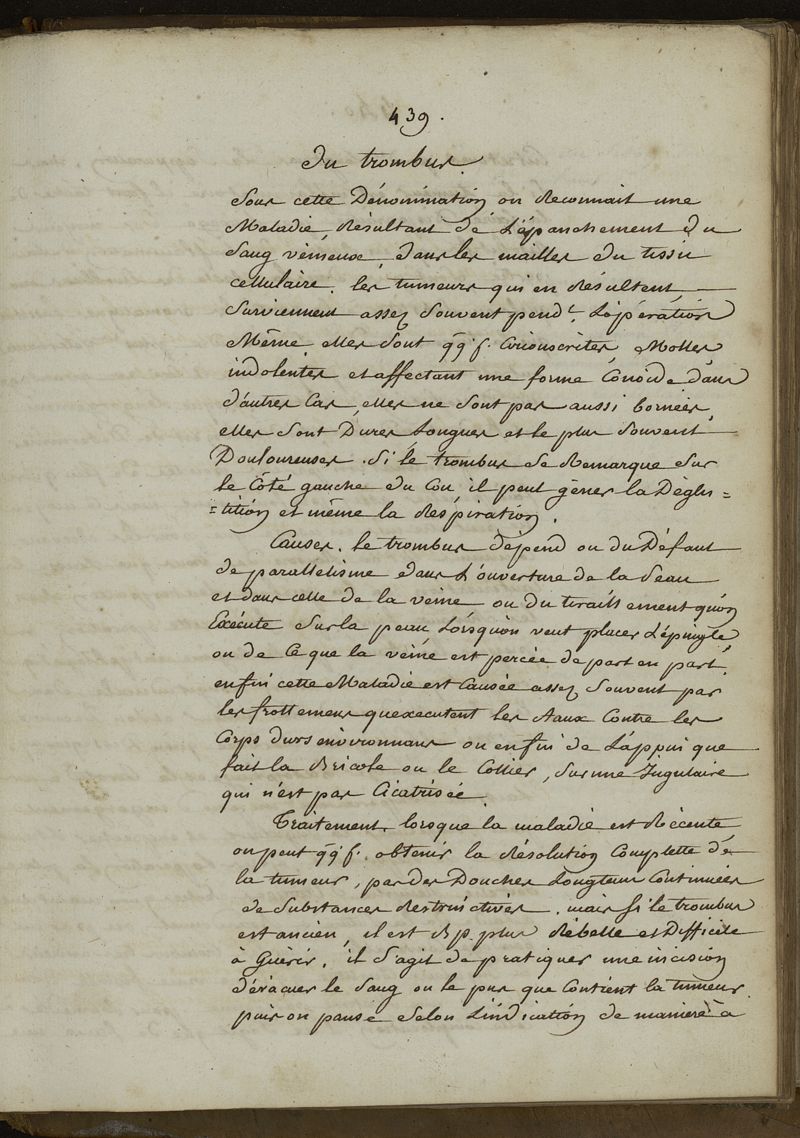 439.
Du trombus.
Sous cette Dénomination on Reconnait une
Maladie, Résultant de L'épanchement du
Sang véineux, dans les mailles du tissu
cellulaire. les tumeurs qui en Résultent,
Surviennent assez Souvent pendt. L'opération
Même elles Sont qq f. Circonscrites, Molles
indolentes et affectant une forme Conoide dans
d'autres Cas, elles ne Sont pas aussi bornées,
elles Sont Dures Longues et le plus Souvent
Douloureuses. Si le trombus Se Remarque Sur
le Côté gauche du Cou il peut gêner la Déglu=
=tition et même la Réspiration.
Causes. le trombus dépend ou du Défaut
de parallelisme dans L'ouverture de la Peau
et dans celle de la veine ou du tiraillement qu'on
Exécute Sur la peau Lorsqu'on veut placer L'épingle
ou de Ce que la veine est percée de part en part,
enfin cette Maladie est Causée assez Souvent par
les frottemens qu'exécutent les Aaux Contre les
Corps durs environnans ou enfin de L'appui que
fait la Bricole ou le Collier, Sur une Jugulaire
qui n'est pas Cicatrisée.
Traitement, lorsque la maladie est Récente
on peut qq f. obtenir la Résolution Complette de
la tumeur, par des Douches Longtems Continuées
de Substances Restrinctives. mais Si le trombus
est ancien, il est plus Rébelle et Difficile
à Guérir. il S'agit de pratiquer une incision
d'évacuer le Sang ou le pus que Contient la tumeur.
puis on panse Selon L'indication de manière à